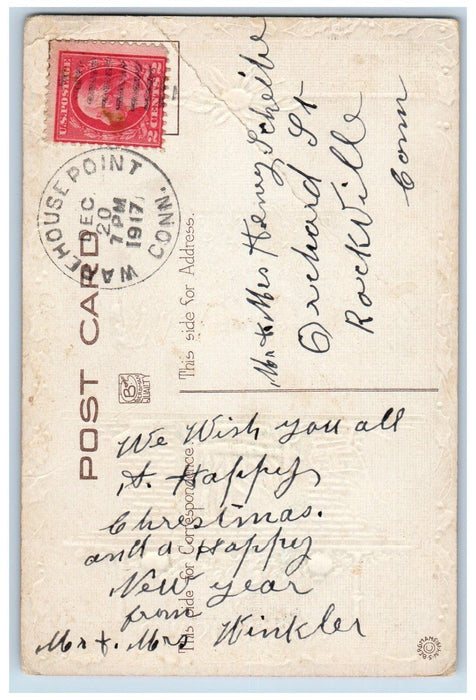 U.S. POSTAGE
2 CENTS 2
WAREHOUSE POINT CONN.
DEC
20
7 PM
1917
POST CARD
This side for Address.
Mr & Mrs Henry Scheibe
Orchard St
Rockville
Conn
QUALITY
This side for Correspondence.
We Wish you all
A Happy
Christmas.
and a Happy
New year
from
Mr & Mrs Winkler